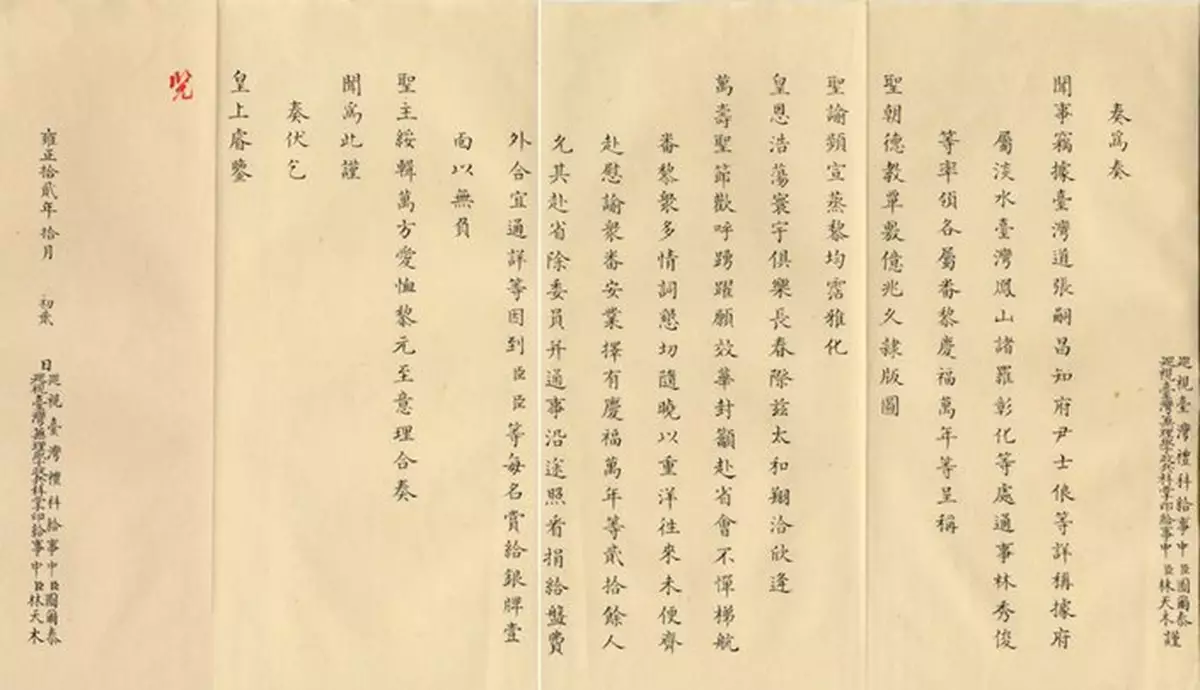 巡視臺灣禮科給事中臣圖爾泰
巡視臺灣兼理學政兵科掌印給事中臣林天木謹
奏為奏
聞事竊據臺灣道張嗣昌知府尹士俍等詳稱據府
屬淡水臺灣鳳山諸羅彰化等處通事林秀俊
等率領各屬番黎慶福萬年等呈稱
聖朝德教覃敷億兆久隸版圖
聖諭頻宣蒸黎均霑雅化
皇恩浩蕩寰宇俱樂長春際茲太和翔洽欣逢
萬壽聖節歡呼踴躍願效華封籲赴省會不憚梯航
番黎眾多情詞懇切隨曉以重洋往來未便齊
赴慰諭眾番安業擇有慶福萬年等貳拾餘人
允其赴省除委員并通事沿途照看捐給盤費
外合宜通詳等因到臣臣等每名賞給銀牌壹
面以無負
聖主綏輯萬方愛恤黎元至意理合奏
聞為此謹
奏伏乞
皇上睿鑒
覽
雍正拾貳年拾月 初貳 日
巡視臺灣禮科給事中臣圖爾泰
巡視臺灣兼理學政兵科掌印給事中臣林天木